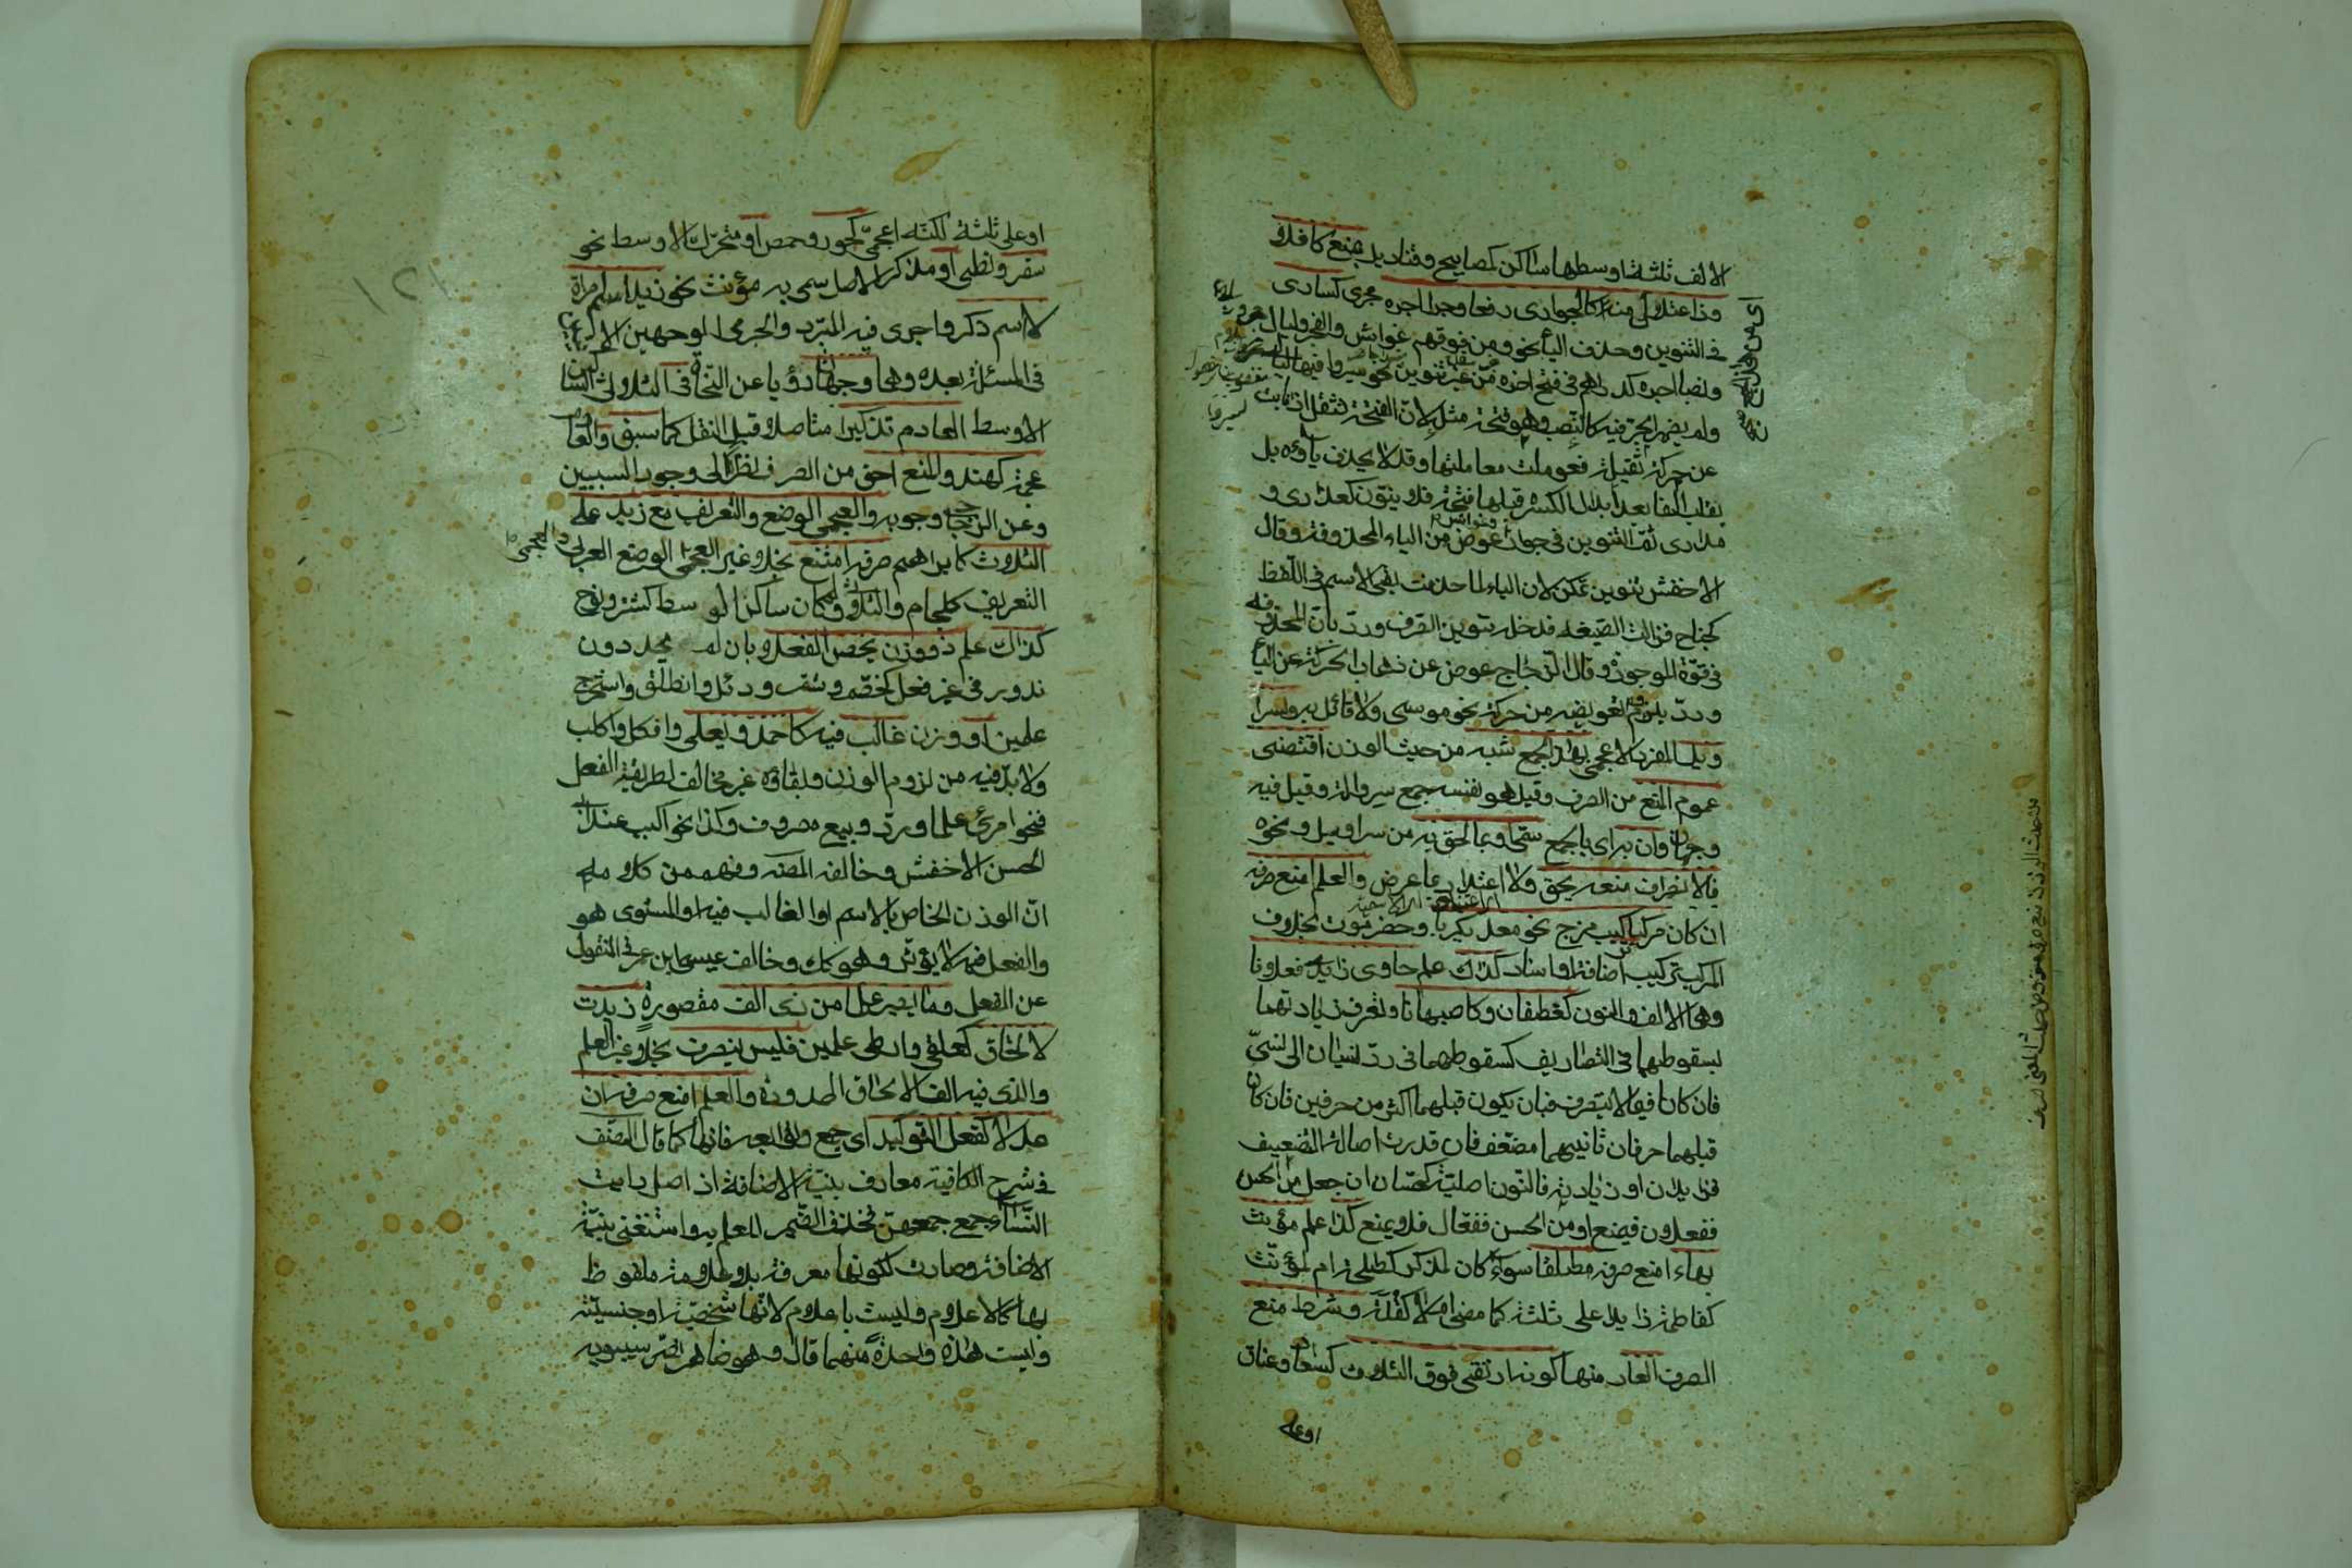 الالف ثلثة اوسطها ساكن كمصابيح وقناديل بمنع كافلا
وذا اعتلال منه كالجوارى رفعا وجرا اجره مجرى كسارى
فى التنوين وحذف الياء نحو ومن فوقهم غواش والفجر وليال
ونصبا اجره كدراهم فى فتح اخره من غير تنوين نحو سيروا فيها ليالى
ولم يظهر الجر فيه كالنصب وهو فتحة مثله لان الفتحة تثقل اذ نابت
عن حركة ثقيلة فعوملت معاملتها وقد لا يحذف ياؤه بل
يقلب الفا بعد ابدال الكسرة قبلها فتحة فلا ينون كعذارى و
مدارى ثم التنوين فى جوار عوض من الياء المحذوفة وقال
الاخفش تنوين تمكن لان الياء لما حذفت بقى الاسم فى اللفظ
كجناح فزالت الصيغة فدخله تنوين الصرف ورد بان المحذوف
فى قوة الموجود وقال الزجاج عوض عن ذهاب الحركة عن الياء
ورد بلزوم تعويضه من حركة نحو موسى ولا قائل به ولسرا
ويل المفرد الاعجمى بهذا الجمع شبه من حيث الوزن اقتضى
عموم المنع من الصرف وقيل هو نفسه جمع سروالة وقيل فيه
وجهان وان به اى بالجمع سمى او بما لحق به من سراويل ونحوه
فالانصراف منعه يحق ولا اعتداد بما عرض والعلم امنع صرفه
ان كان مركبا تركيب مزج نحو معديكربا وحضرموت بخلاف
المركب تركيب اضافة او اسناد كذاك علم حاوى زايدى فعلانا
وهما الالف والنون كغطفان وكاصبهانا وتعرف زيادتهما
بسقوطهما فى التصاريف كسقوطهما فى رد نسيان الى نسى
فان كانا فيما لا يتصرف فبان يكون قبلهما اكثر من حرفين فان كان
قبلهما حرفان ثانيهما مضعف فان قدرت اصالة التضعيف
فزايدان او زيادته فالنون اصلية كحسان ان جعل من الحس
ففعلان فيمنع او من الحسن ففعال فلا يمنع كذا علم مؤنث
بهاء امنع صرفه مطلقا سواء كان لمذكر كطلحة ام لمؤنث
كفاطمة زايد على ثلثة كما مضى ام لا كقلة وشرط منع
الصرف العار منها كونه ارتقى فوق الثلاث كسعاد وعناق
او على
او على ثلثة لكنه اعجمى كجور وحمص او متحرك الاوسط نحو
سقر ولظى او مذكر الاصل سمى به مؤنث نحو زيد اسم امراة
لا اسم ذكر واجرى فيه المبرد والجرمى الوجهين
فى المسئلة بعده وهما وجهان رؤيا عن النحاة فى الثلاثى الساكن
الاوسط العادم تذكيرا متاصلا قبل النقل كما سبق والعادم
عجمة كهند والمنع احق من الصرف نظرا الى وجود السببين
وعن الزجاج وجوبه والعجمى الوضع والتعريف مع زيد على
الثلاث كابراهيم صرفه امتنع بخلاف غير العجمى الوضع العربى
التعريف كلجام والثلاثى ولو كان ساكن الوسط كشتر ونوح
كذاك علم ذو وزن يخص الفعلا بان لم يوجد دون
ندور فى غير فعل كخضم وشقر ودئل وانطلق واستخرج
علمين او وزن غالب فيه كاحمد ويعلى وافكل واكلب
ولا بد فيه من لزوم الوزن وبقائه غير مخالف لطريقة الفعل
فنحو امرئ علما ورد وبيع مصروف وكذا نحو البب عند ابى
الحسن الاخفش وخالفه المصنف وفهم من كلامه
ان الوزن الخاص بالاسم او الغالب فيه او المستوى هو
والفعل فيه لا يؤثر وهو كذلك وخالف عيسى بن عمر فى المنقول
عن الفعل وما يصير علما من ذى الف مقصورة زيدت
لالحاق كعلقى وارطى علمين فليس ينصرف بخلاف غير العلم
والذى فيه الف الالحاق الممدودة والعلم امنع صرفه ان
عدلا كفعل التوكيد اى جمع وتوابعه فانها كما قال المصنف
فى شرح الكافية معارف بنية الاضافة اذ اصل رايت
النساء جمع جمعهن فحذف الضمير للعلم به واستغنى بنية
الاضافة وصارت لكونها معرفة بلا علامة ملفوظ
بها كالاعلام وليست باعلام لانها شخصية او جنسية
وليست هذه واحدة منهما قال وهو ظاهر نص سيبويه